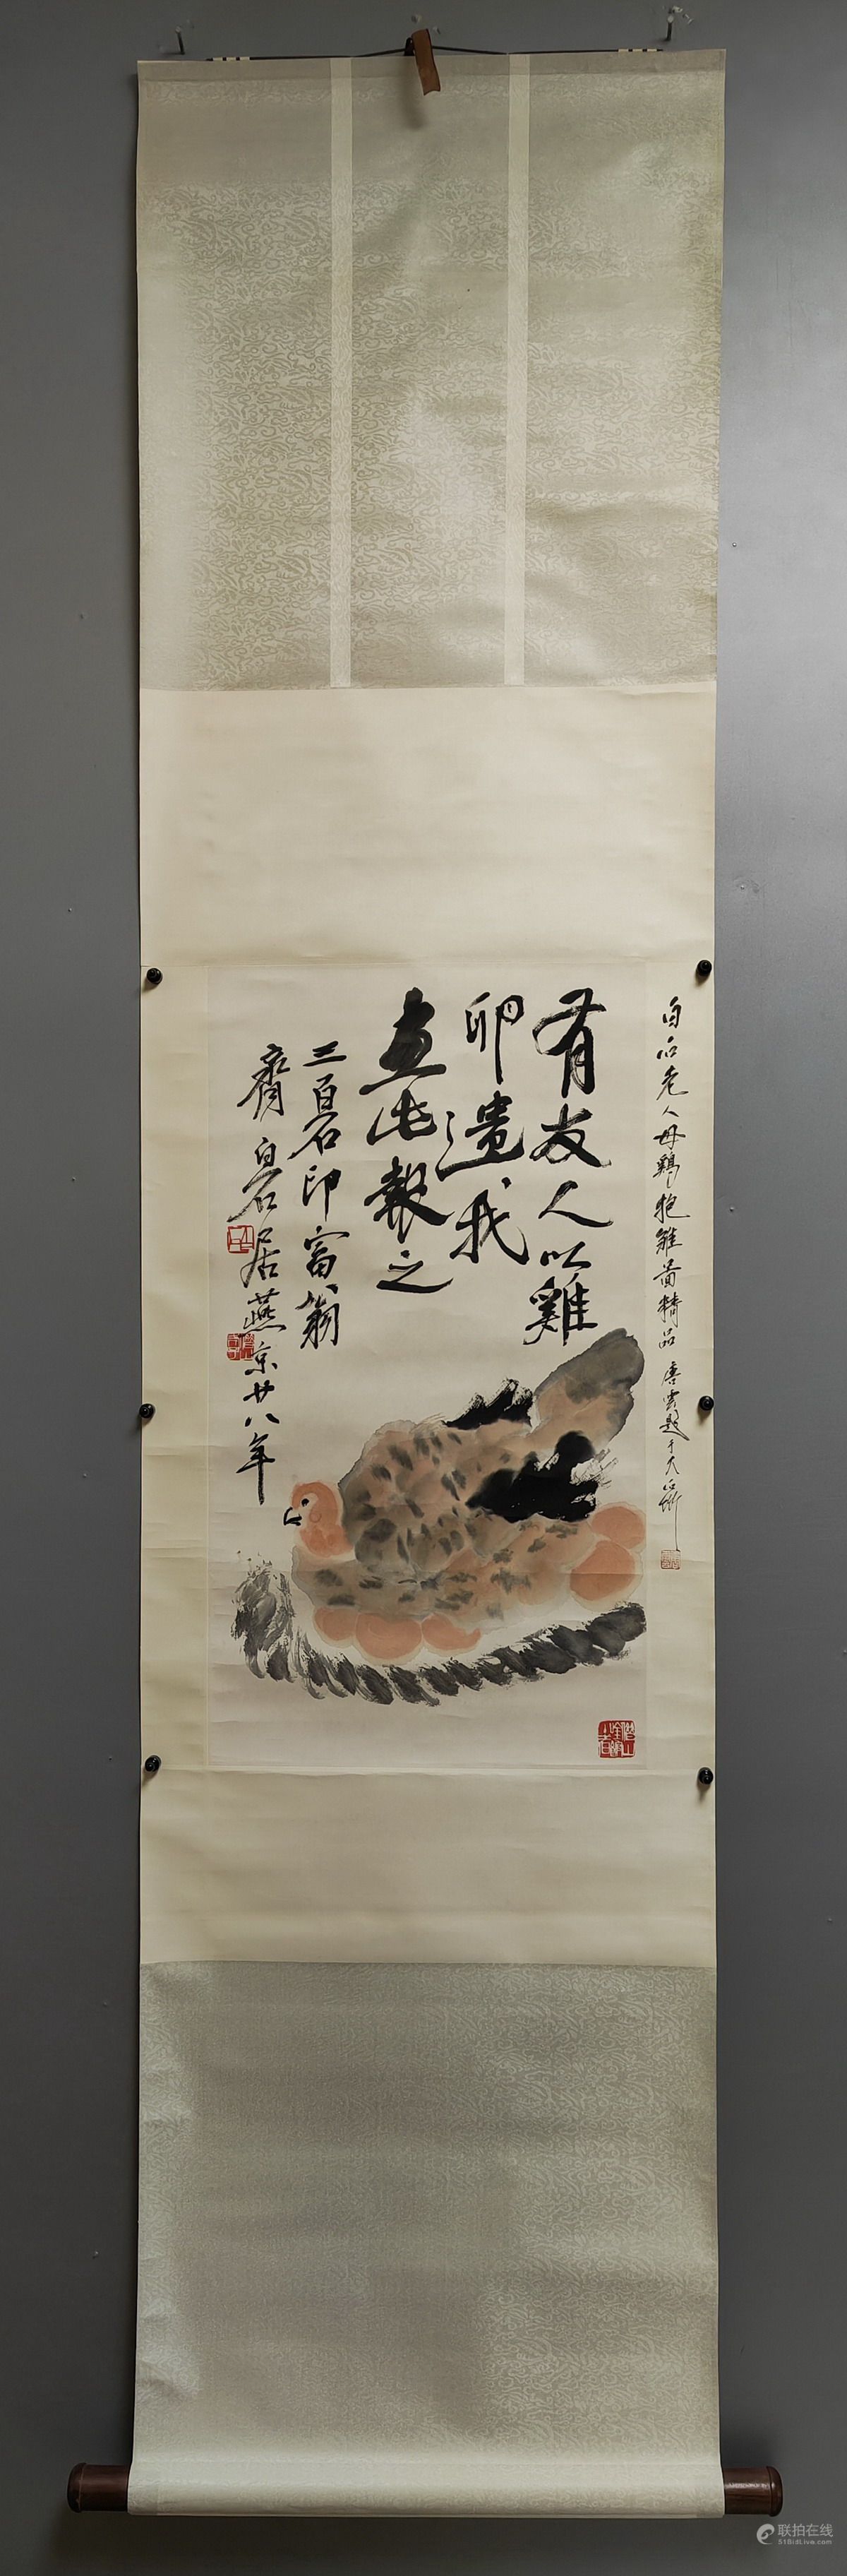 白石老人母鷄抱雏啚精品 唐雲題于大石斎
有友人以雞
卵遺我
畫此報之
三百石印富翁
齊白石居燕京廿八年
联拍在线
51BidLive.com